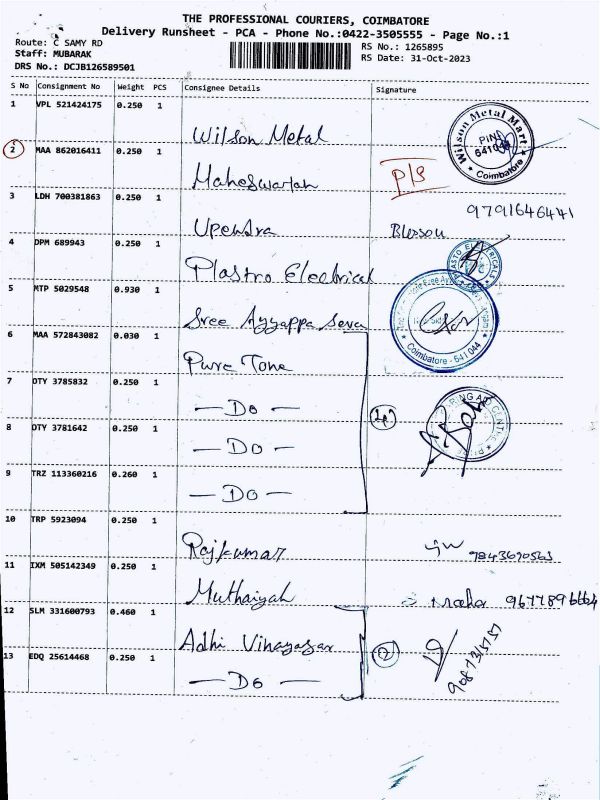 THE PROFESSIONAL COURIERS, COIMBATORE
Delivery Runsheet - PCA - Phone No.:0422-3505555 - Page No.:1
Route: C SAMY RD
Staff: MUBARAK
DRS No.: DCJB126589501
RS No.: 1265895
RS Date: 31-Oct-2023
S No Consignment No Weight PCS Consignee Details Signature
1 VPL 521424175 0.250 1 Wilson Metal
Wilson Metal Mart PIN 641038 Coimbatore
2 MAA 862016411 0.250 1 Maheswaran P/S
3 LDH 700381863 0.250 1 Upendra Blesson
9791646441
4 DPM 689943 0.250 1 Plastro Electrical
5 MTP 5029548 0.930 1 Sree Ayyappa Seva
Coimbatore - 641 044
6 MAA 572843082 0.030 1 Pure Tone
7 OTY 3785832 0.250 1 — Do —
8 OTY 3781642 0.250 1 — Do —
9 TRZ 113360216 0.260 1 — Do —
10 TRP 5923094 0.250 1 Rajkumar 9843690563
11 IXM 505142349 0.250 1 Muthaiyah 9677896664
12 SLM 331600793 0.460 1 Adhi Vinayagar
13 EDQ 25614468 0.250 1 — Do —